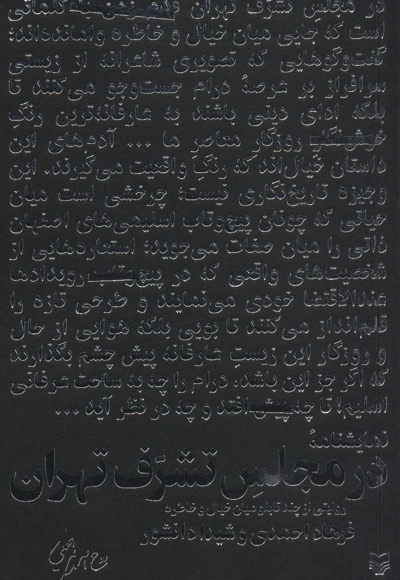 در مجلس تشرف تهران کلماتی
است که جایی میان خیال و خاطره وامانده‌اند؛
گفت‌وگوهایی که تصویری شاعرانه از زیستی
سرافراز بر عرصهٔ درام جست‌وجو می‌کنند تا
بلکه ادای دینی باشند به عارفانه‌ترین رنگِ
روزگار معاصر ما ... آدم‌های این
داستان خیال‌اند که رنگِ واقعیت می‌گیرند. این
وجیزه تاریخ‌نگاری نیست؛ چرخشی است میان
حیاتی که چونان پیچ‌وتاب اسلیمی‌های اصفهان
ذاتی را میان صفات می‌جوید؛ استعاره‌هایی از
شخصیت‌های واقعی که در رویدادها
عندالاقتضا خودی می‌نمایند و طرحی تازه را
قلم‌انداز می‌کنند تا بویی بلکه هوایی از حال
و روزگار این زیست عارفانه پیش چشم بگذارند
که اگر جز این باشد، درام را چه به ساحت عرفانی
اسلیم! تا چه افتد و چه در نظر آید ...
نمایشنامهٔ
در مجلسِ تشرّف تهران
روایتی از چند تابلو میان خیال و خاطره
فرهاد احمدی و شیدا دانشور